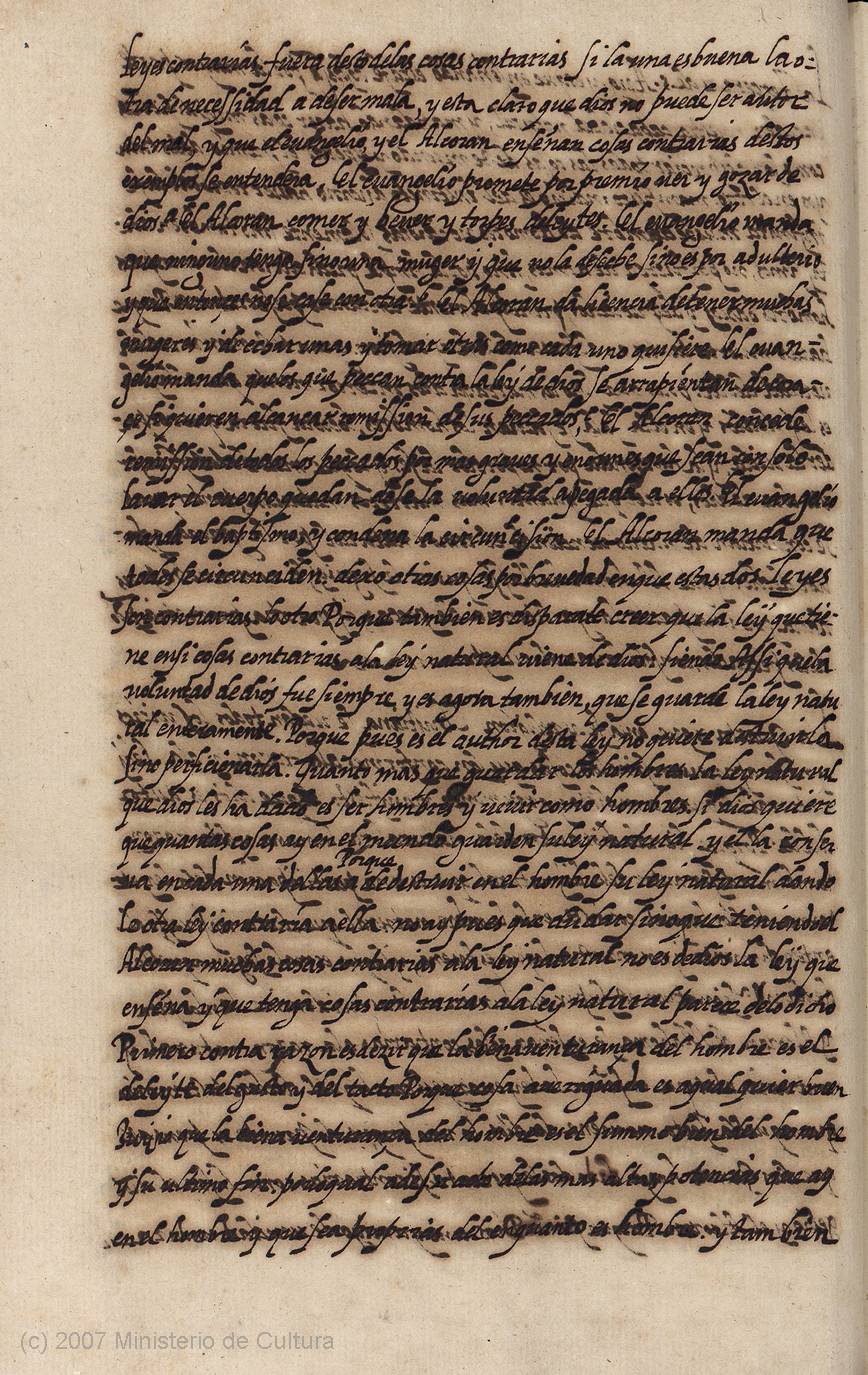 leyes contrarias fuera desto delas cosas contrarias si la una es buena la o-
tra de necessidad a de ser mala, y esta claro que dios no puede ser autor
del mal, y que el evangelio y el Alcoran enseñan cosas contrarias destos
exemplos se entendera. El evangelio promete por premio ver y gozar de
dios. El Alcoran comer y bever y torpes deleytes. El evangelio manda
que ninguno tenga sino una muger y que no la deseche sino es por adulterio
y que entonces no se case con otra. El Alcoran da licencia de tener muchas
mugeres y de echar unas y tomar otras como cada uno quisiere. El evan-
gelio manda que los que peccan contra la ley de dios se arrepientan
si quieren alcançar remission de sus peccados, El Alcoran concede
remission de todos los peccados por mas graves y enormes que sean con solo
lavar el cuerpo quedan dose la voluntad apegada a ellos. El evangelio
manda el baptismo, y condena la circuncision. El Alcoran manda que
todos se circunciden. dexo otras cosas por brevedad en que estas dos leyes
son contrarias. lo otro Porque tambien es disparate creer que la ley que tie-
ne en si cosas contrarias a la ley natural viene de dios. siendo Assi que la
voluntad de dios fue siempre, y es agora tambien, que se guarde la ley natu
ral enteramente. Porque pues es el author desta ley no quiere destruirla
sino perficionarla. Quanto mas que guardar los hombres la ley natural
que dios les ha dado es ser hombres y vivir como hombres. si dios quiere
que quantas cosas ay en el mundo guarden su ley natural y el la conser
va en cada una dellas Porque a de destruir en el hombre su ley natural dando
le otra ley contraria a ella. no ay pues que dudar sino que teniendo el
Alcoran muchas cosas contrarias a la ley natural no es de dios la ley que
enseña y que tenga cosas contrarias a la ley natural parece delo dicho
Primero contra razon es dezir que la bienaventurança del hombre es el
deleyte del gusto y del tacto Porque cosa averiguada es a qualquier buen
Juizio que la bienaventurança del hombre es el summo bien del hombre
y su ultimo fin. por lo qual a de ser acto delas mas altas potencias que ay
en el hombre y que sea proprias del en quanto es hombre. y tam bien
(c) 2007 Ministerio de Cultura